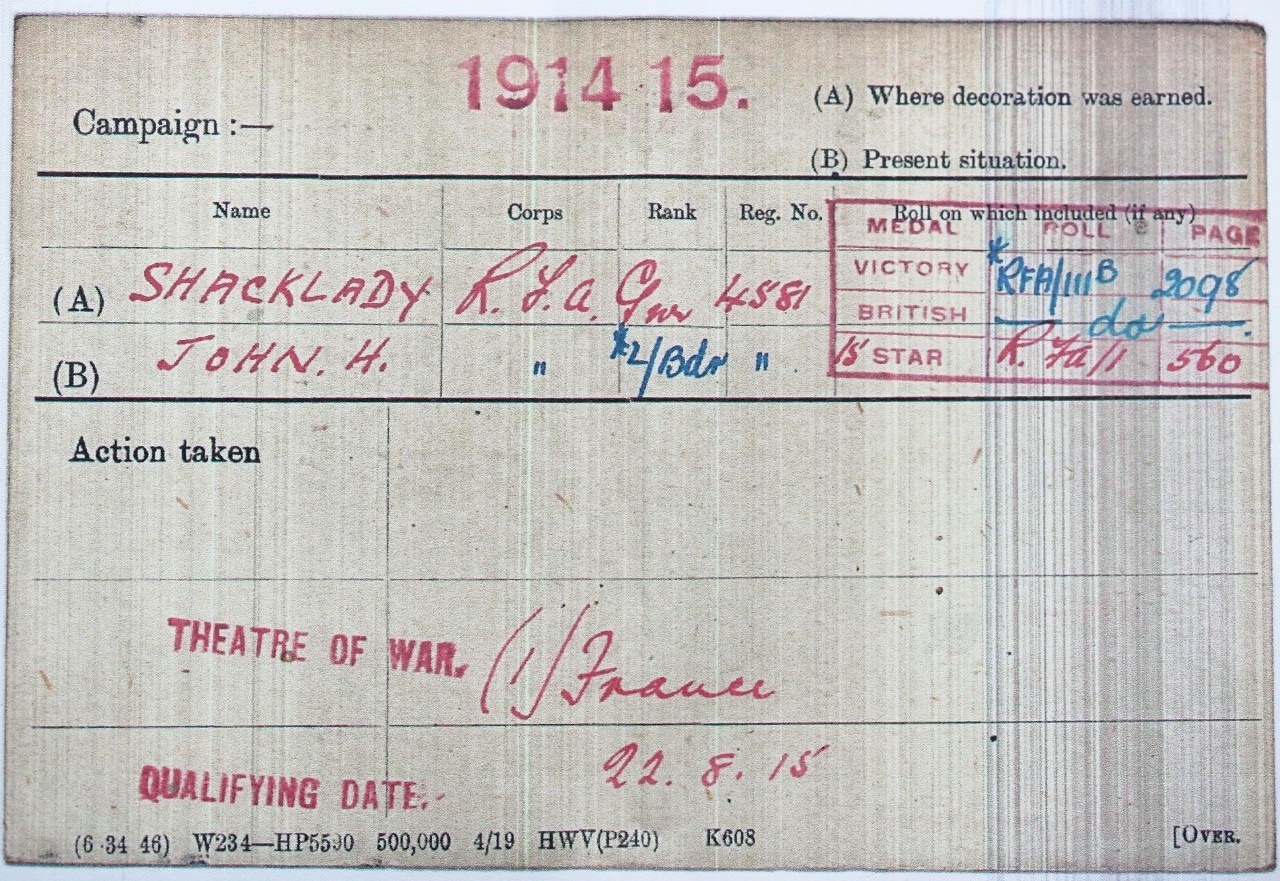 1914 15.
Campaign :—
(A) Where decoration was earned.
(B) Present situation.
Name Corps Rank Reg. No. Roll on which included (if any)
MEDAL ROLL PAGE
(A) SHACKLADY R.F.A. Gnr 4581
VICTORY *RFA/111B 2098
BRITISH — do —.
(B) JOHN. H. " *2/Bdr "
15 STAR R.Fa/1 560
Action taken
THEATRE OF WAR. (1) France
QUALIFYING DATE. 22. 8. 15
(6 34 46) W234—HP5590 500,000 4/19 HWV(P240) K608 [OVER.